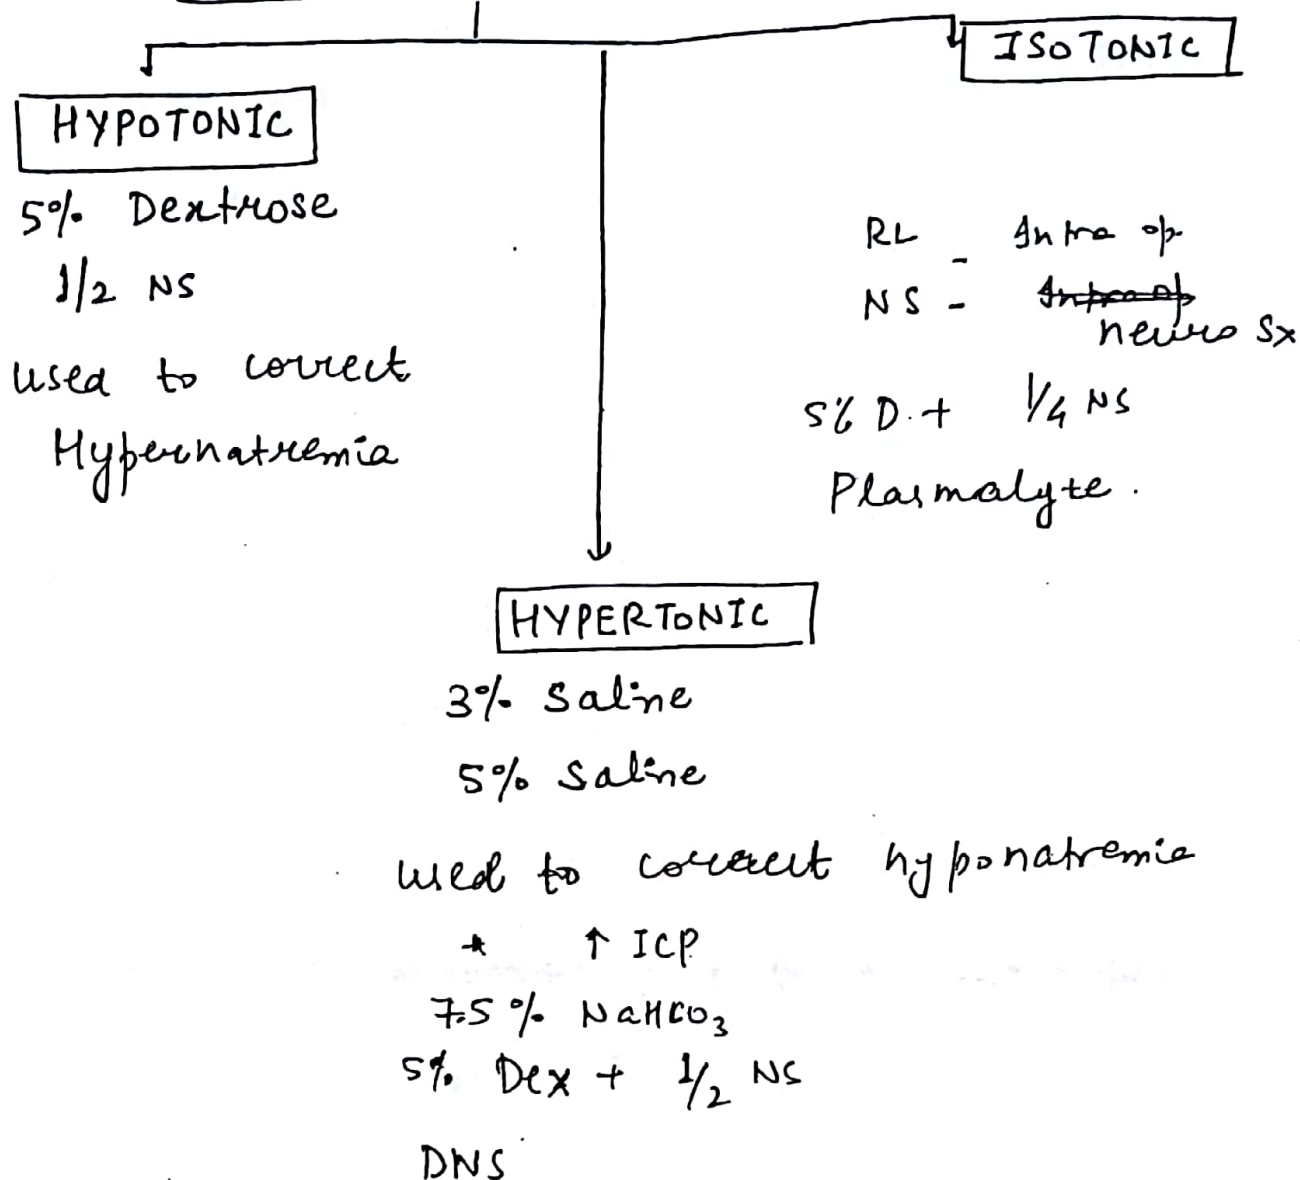 HYPOTONIC
5% Dextrose
1/2 NS
used to correct
Hypernatremia
ISOTONIC
RL - Intra op
NS - Intra op
neuro Sx
5% D. + 1/4 NS
Plasmalyte.
HYPERTONIC
3% Saline
5% Saline
used to correct hyponatremia
* ↑ ICP
7.5% NaHCO3
5% Dex + 1/2 NS
DNS